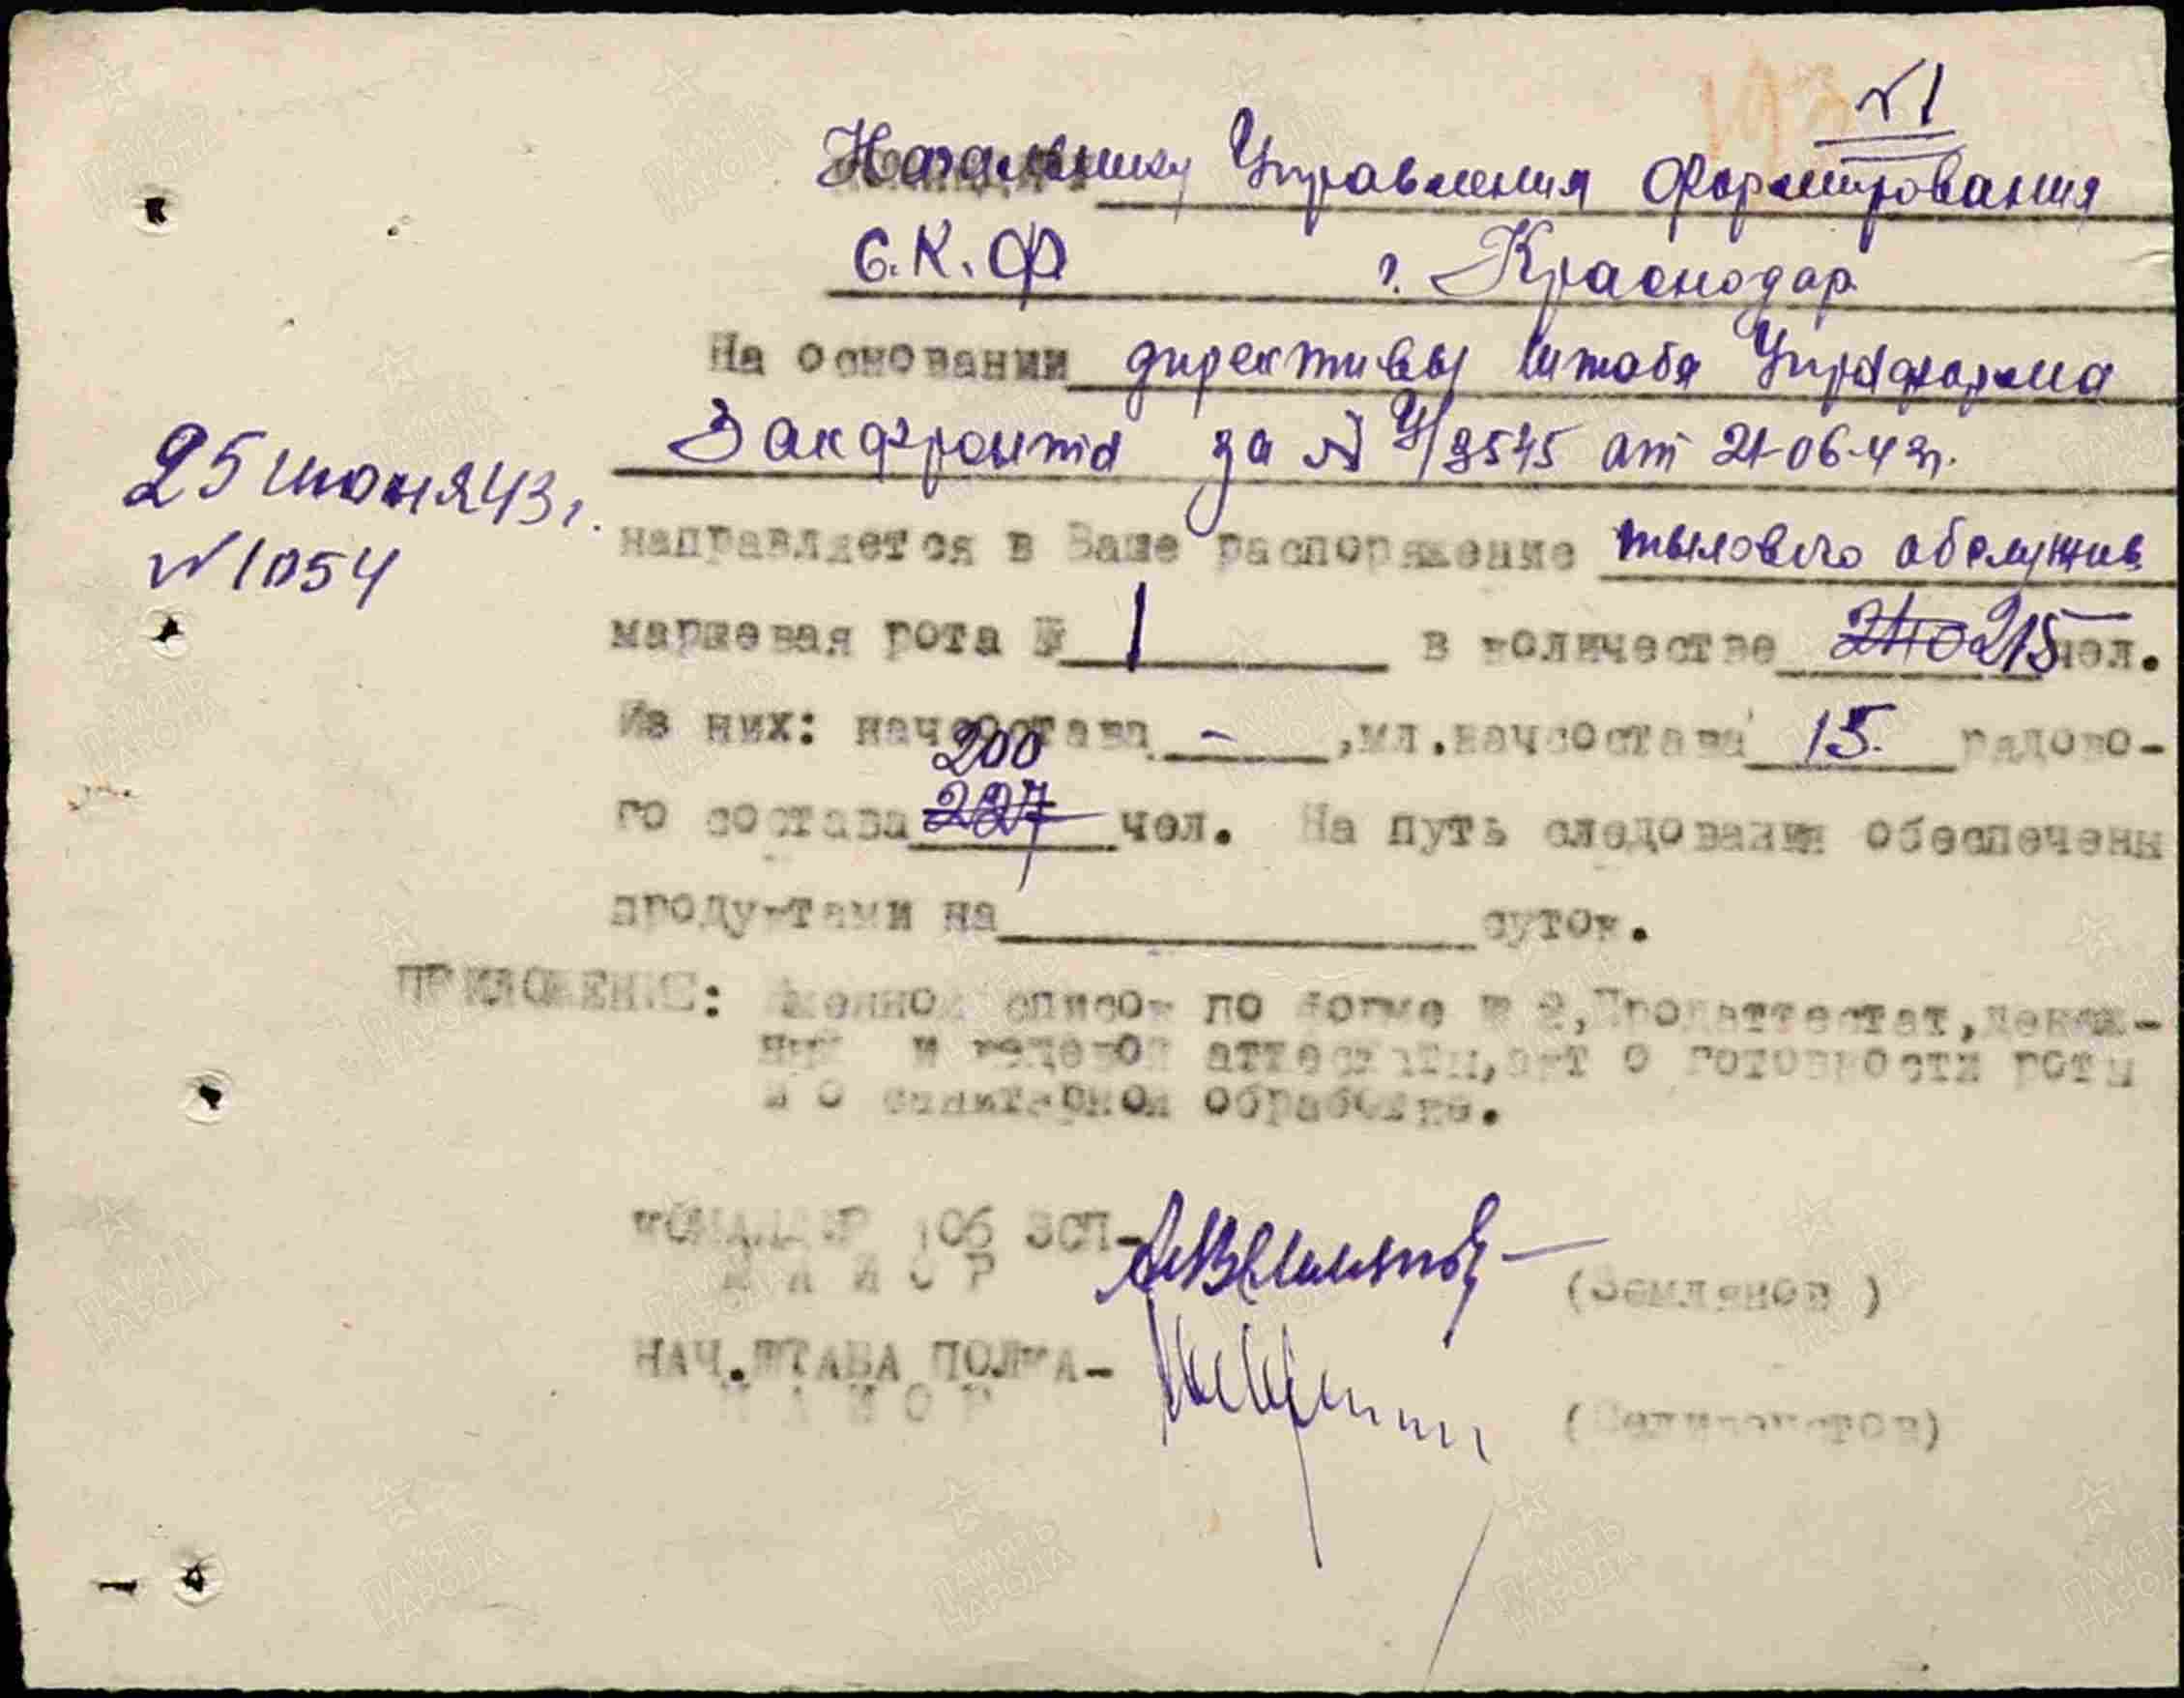 №1
Начальнику Управления Формирования
С.К.Ф г. Краснодар
На основании директивы штаба Упраформа
Закфронта за № У/3545 от 21-06-43г.
25 июня 43г.
№1054
направляется в Ваше распоряжение тылового обслужив
маршевая рота № 1 в количестве 240 215 чел.
Из них: начсостава - ,мл.начсостава 15. рядово-
200
го состава 227 чел. На путь следования обеспечены
продуктами на суток.
ПРИЛОЖЕНИЕ: Именной список по форме № 2,Продаттестат,денеж-
ный и вещевой аттестаты,акт о готовности роты
и о санитарной обработке.
КОМАНДИР 106 ЗСП-
МАЙОР (Землянов )
НАЧ.ШТАБА ПОЛКА-
МАЙОР